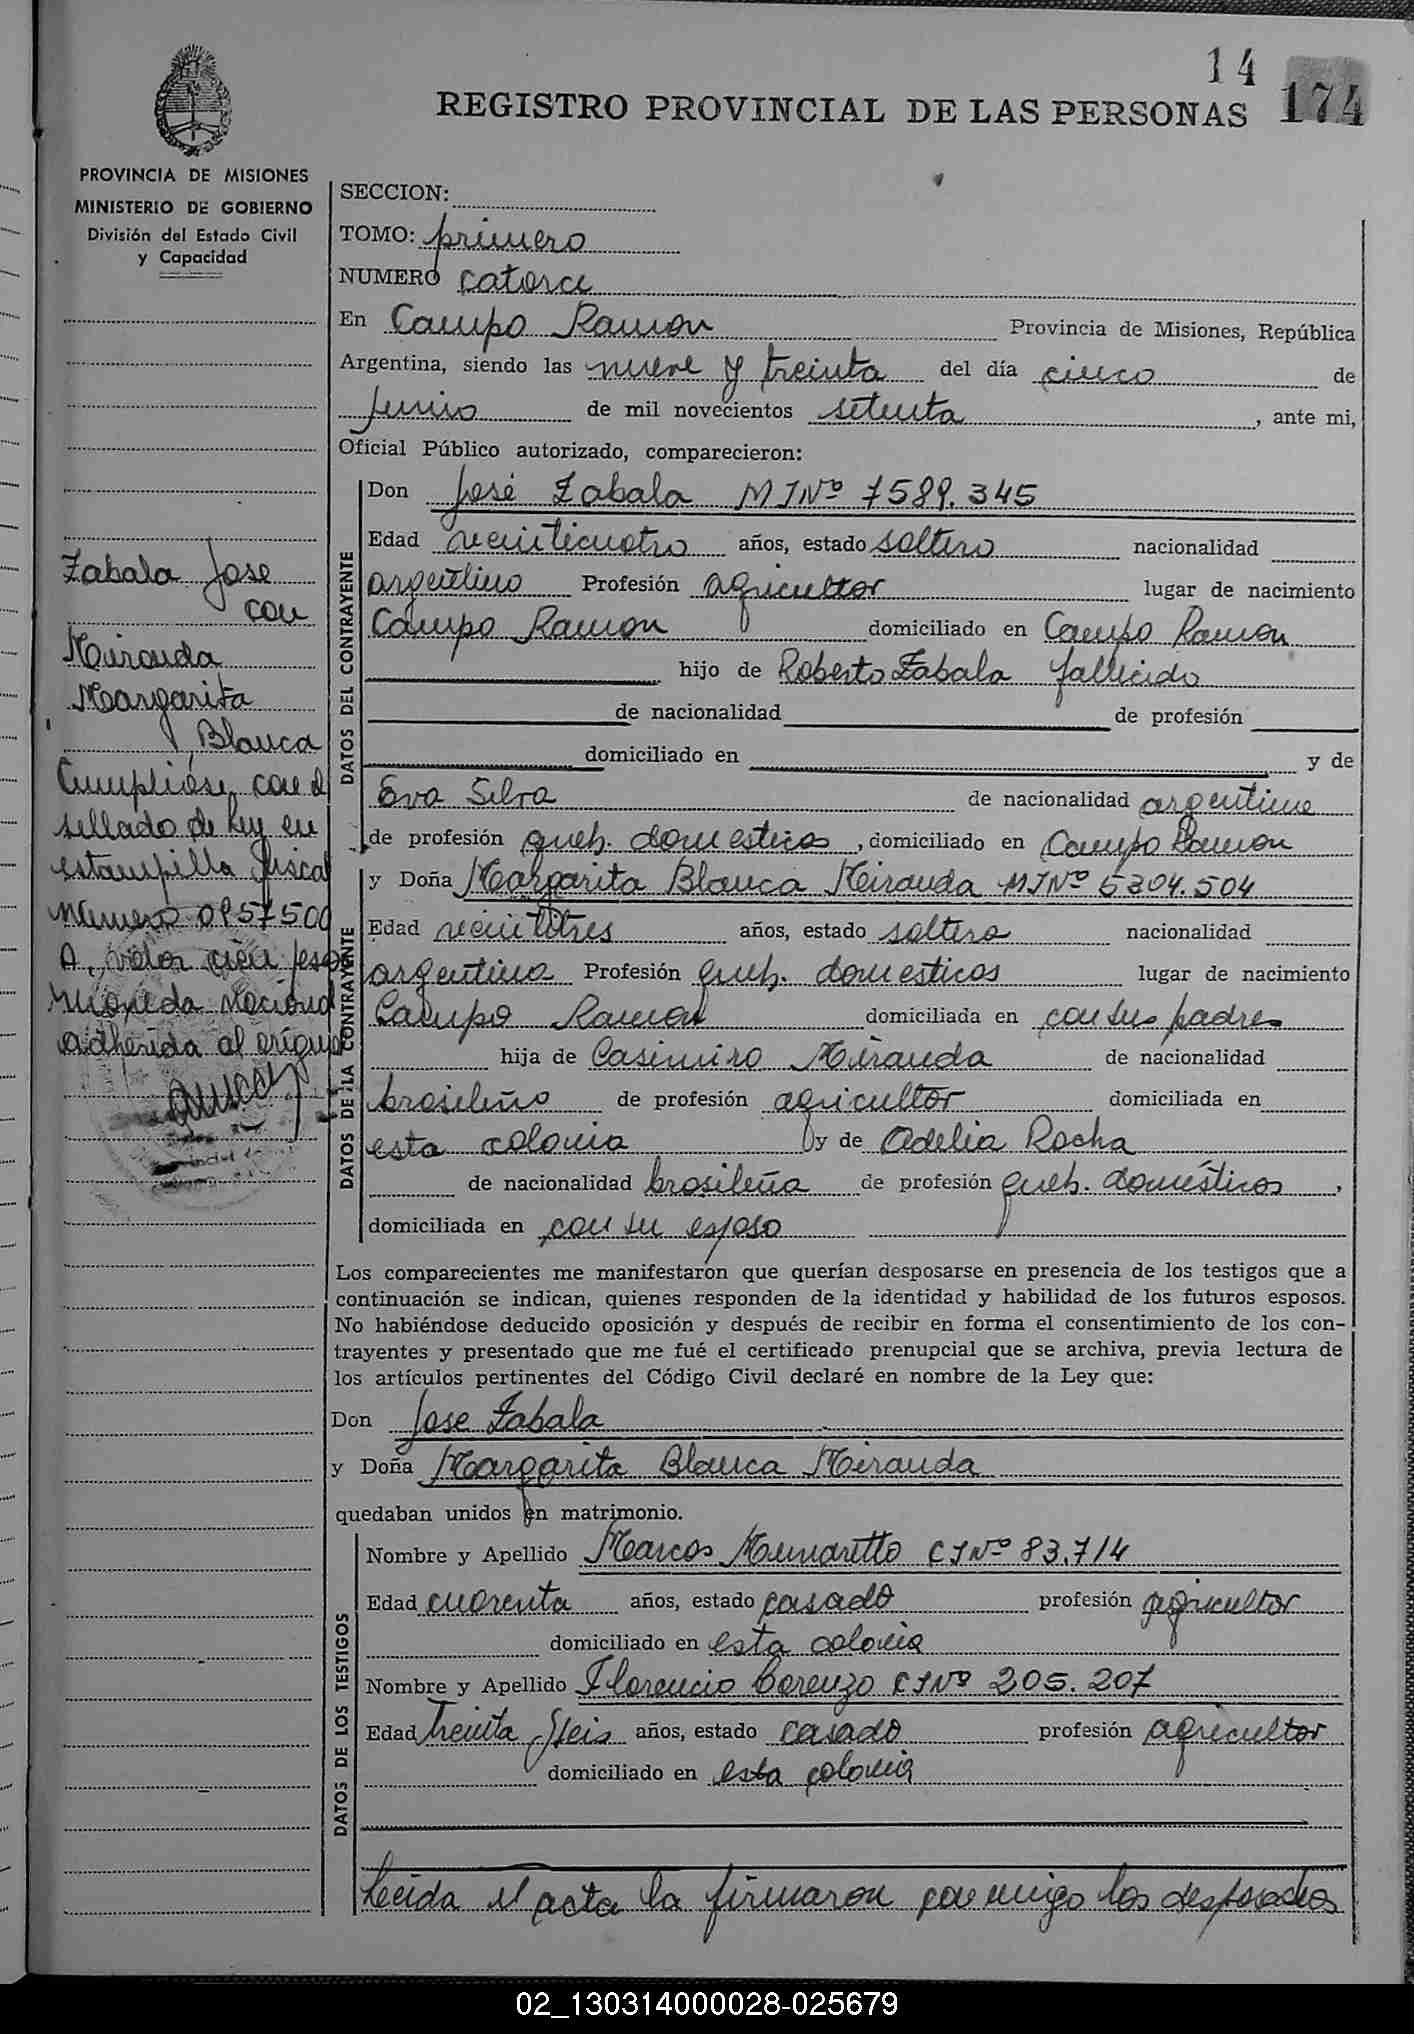 14
174
REGISTRO PROVINCIAL DE LAS PERSONAS
PROVINCIA DE MISIONES
MINISTERIO DE GOBIERNO
División del Estado Civil
y Capacidad
SECCION:
TOMO: primero
NUMERO catorce
En Campo Ramon Provincia de Misiones, República
Argentina, siendo las nueve y treinta del día cinco de
Junio de mil novecientos setenta, ante mi,
Oficial Público autorizado, comparecieron:
DATOS DEL CONTRAYENTE
Don José Zabala MINº 7589.345
Edad veinticuatro años, estado soltero nacionalidad
argentino Profesión agricultor lugar de nacimiento
Campo Ramon domiciliado en Campo Ramon
hijo de Roberto Zabala fallecido
de nacionalidad de profesión
domiciliado en y de
Eva Silva de nacionalidad argentina
de profesión queh. domesticos, domiciliado en Campo Ramon
DATOS DE LA CONTRAYENTE
y Doña Margarita Blanca Miranda MINº 6304.504
Edad veintitres años, estado soltera nacionalidad
argentina Profesión queh. domesticos lugar de nacimiento
Campo Ramon domiciliada en con sus padres
hija de Casimiro Miranda de nacionalidad
brasileño de profesión agricultor domiciliada en
esta colonia y de Adelia Rocha
de nacionalidad brasileña de profesión queh. domésticos,
domiciliada en con su esposo
Zabala Jose
con
Miranda
Margarita
Blanca
Cumplióse con el
sellado de ley en
estampilla fiscal
número 0957500
A, valor cien pesos
moneda nacional
adherida al original
Los comparecientes me manifestarón que querían desposarse en presencia de los testigos que a
continuación se indican, quienes responden de la identidad y habilidad de los futuros esposos.
No habiéndose deducido oposición y después de recibir en forma el consentimiento de los con-
trayentes y presentado que me fué el certificado prenupcial que se archiva, previa lectura de
los artículos pertinentes del Código Civil declaré en nombre de la Ley que:
Don Jose Zabala
y Doña Margarita Blanca Miranda
quedaban unidos en matrimonio.
DATOS DE LOS TESTIGOS
Nombre y Apellido Marcos Munaretto CINº 83.714
Edad cuarenta años, estado casado profesión agricultor
domiciliado en esta colonia
Nombre y Apellido Florencio Lorenzo CINº 205.207
Edad treinta y seis años, estado casado profesión agricultor
domiciliado en esta colonia
Leida el acta la firmaron conmigo los desposados
02_130314000028-025679